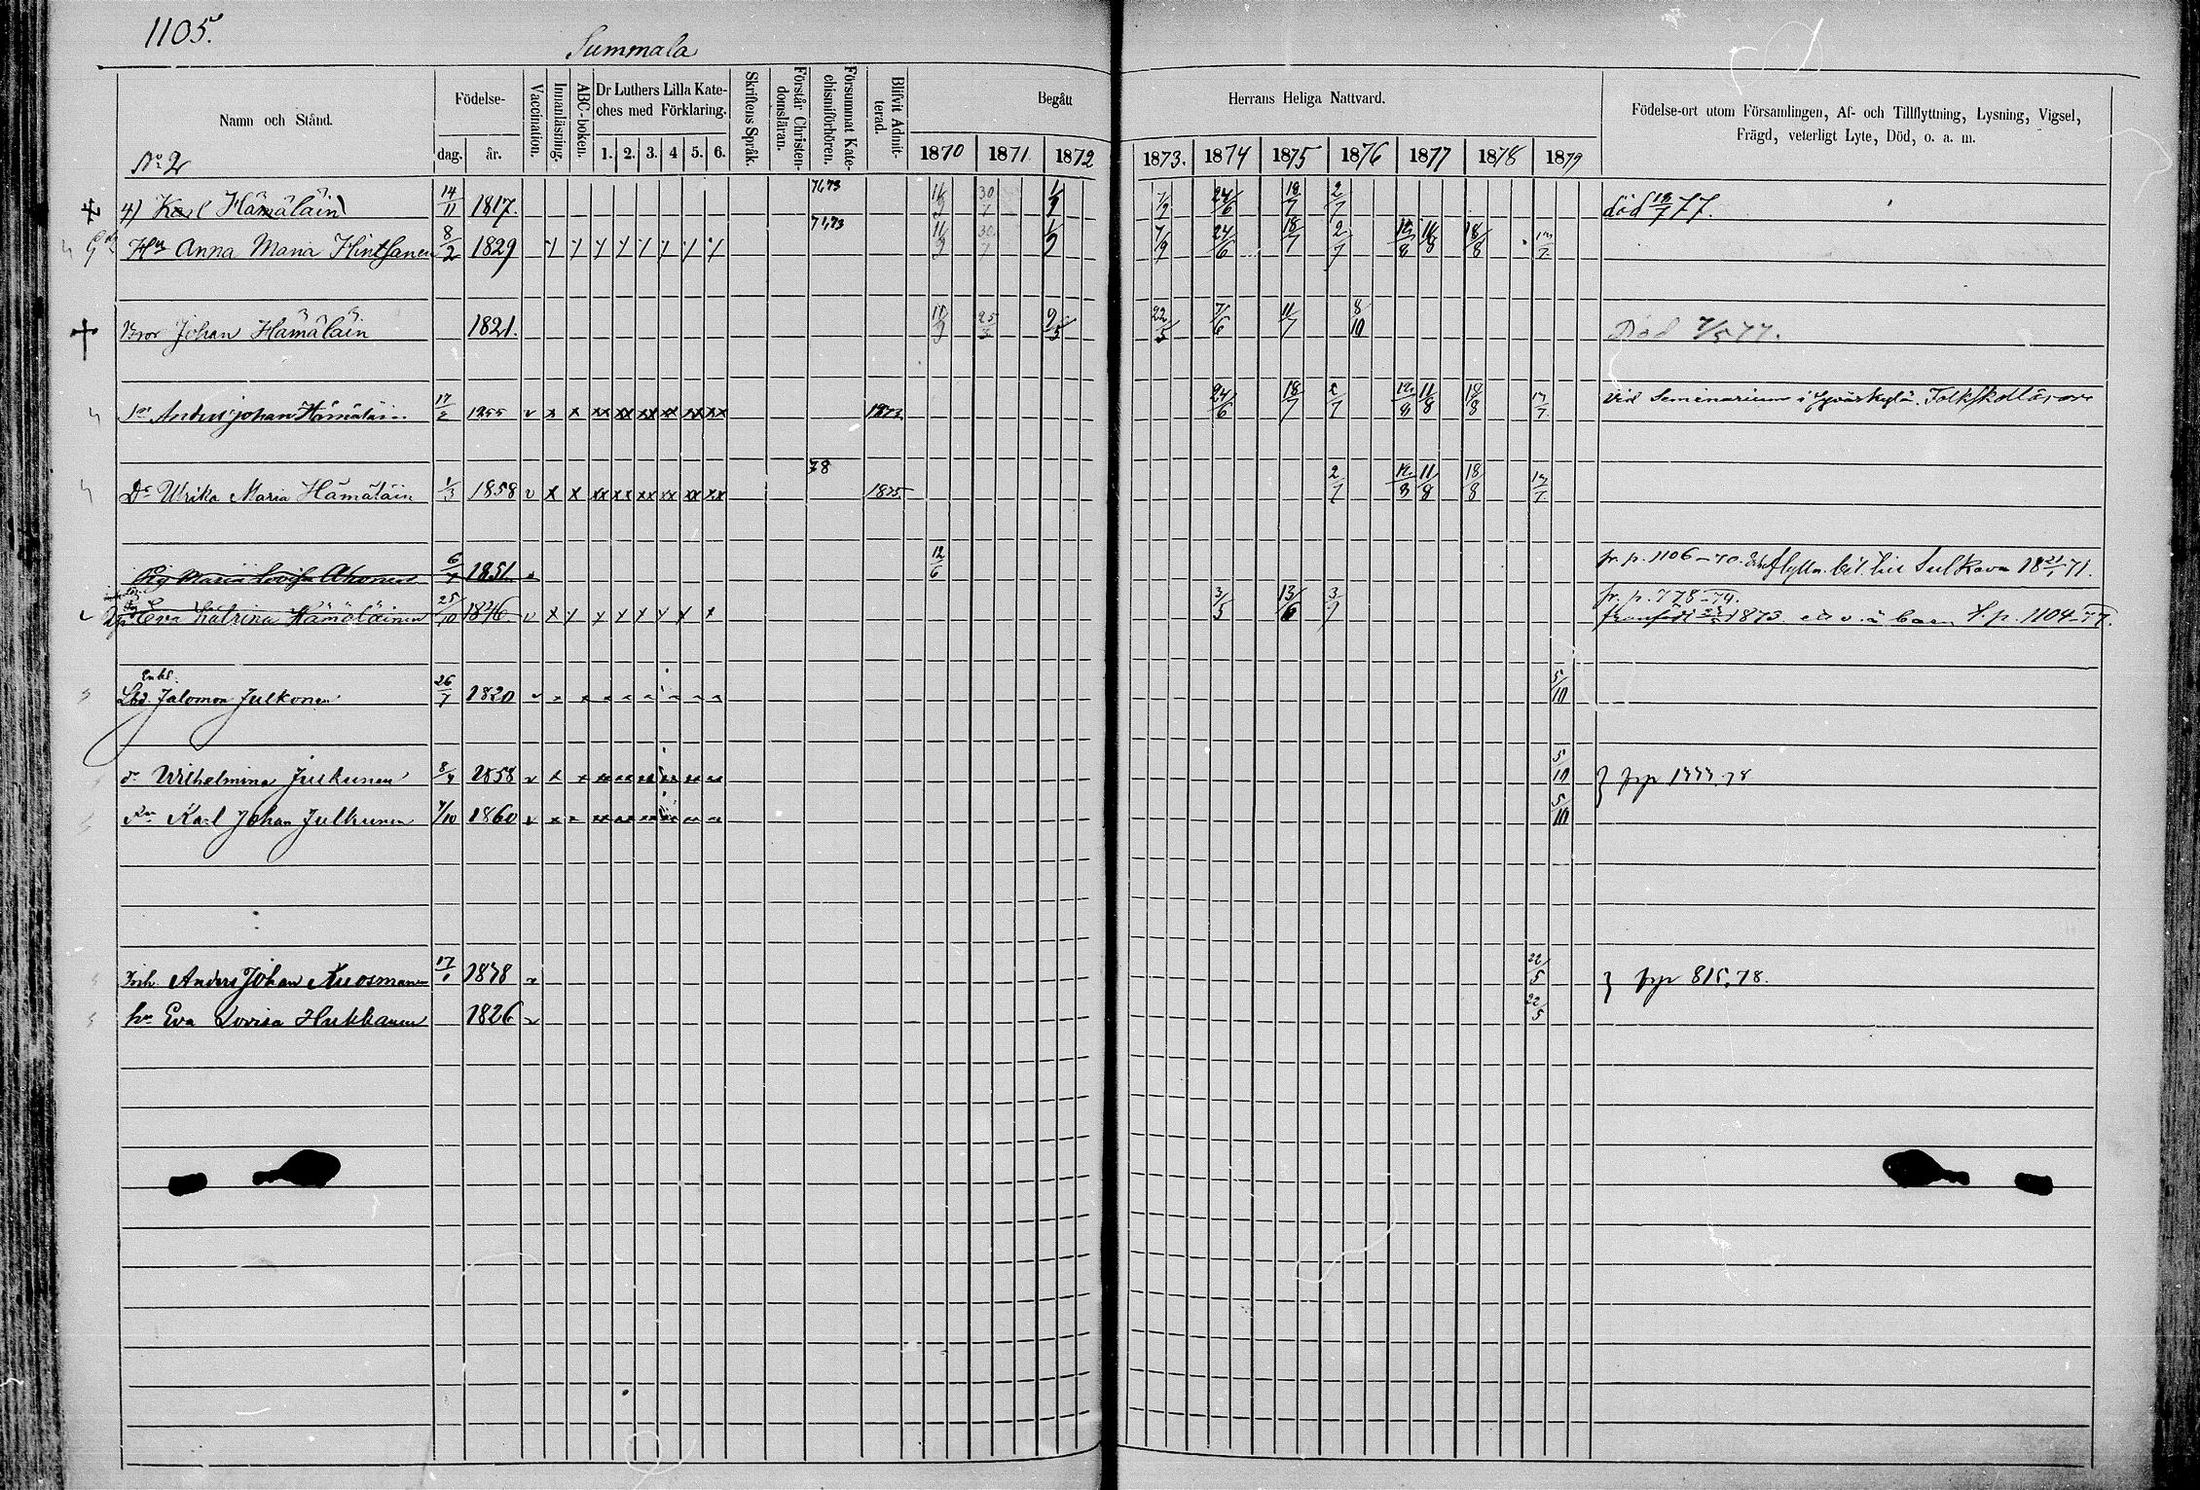 1105.
Summala
Namn och Stånd. Födelse- dag. år. Vaccination. Innanläsning. ABC-boken. Dr Luthers Lilla Kate-ches med Förklaring. 1. 2. 3. 4 5. 6. Skriftens Språk. Förstår Christen-domsläran. Försummat Kate-chismiförhören. Blifvit Admit-terad. Begått Herrans Heliga Nattvard. Födelse-ort utom Församlingen, Af- och Tillflyttning, Lysning, Vigsel,
Frägd, veterligt Lyte, Död, o. a. m.
No 2 1870 1871 1872 1873. 1874 1875 1876 1877 1878 1879
4) Karl Hämäläin 14/11 1817. 71,73 30/7 1/9 7/9 24/6 18/7 2/7 död 18/7 77.
Hu Anna Maria Hintsanen 8/2 1829 71,73 30/7 1/9 7/9 24/6 18/7 2/7 12/8 11/8 18/8 17/7
Bror Johan Hämäläin 1821. 25/3 9/5 22/5 7/6 11/7 8/10 Död 7/5 77.
Sn Anders Johan Hämäläin 17/2 1855 v x x xx xx xx xx xx xx 1873 24/6 18/7 2/7 12/8 11/8 18/8 17/7 vid Seminarium i Jyväskylä. Folkskollärare
Dr Ulrika Maria Hämäläin 1/3 1858 v x x xx xx xx xx xx xx 78 1875 2/7 12/8 11/8 18/8 17/7
Pig Maria Lovisa Ahonen 6/7 1851 12/6 fr. p. 1106-70. flytta. bet. till Sulkava 18 21/1 71.
fr. p. 778-74.
Eva Katrina Hämäläinen 25/10 1846 v x x x x x x x x 3/5 13/6 3/7 1873 barn t. p. 1104-77.
Enkl.
Salomon Julkonen 26/7 1820 5/10
dr Wilhelmina Julkunen 8/9 1858 5/10 } frp 1777.78
Sn Karl Johan Julkunen 7/10 1860 5/10
Inh. Anders Johan Kuosmanen 17/1 1878 22/5 } frp 815.78.
hu Eva Lovisa Hukkanen 1826 22/5